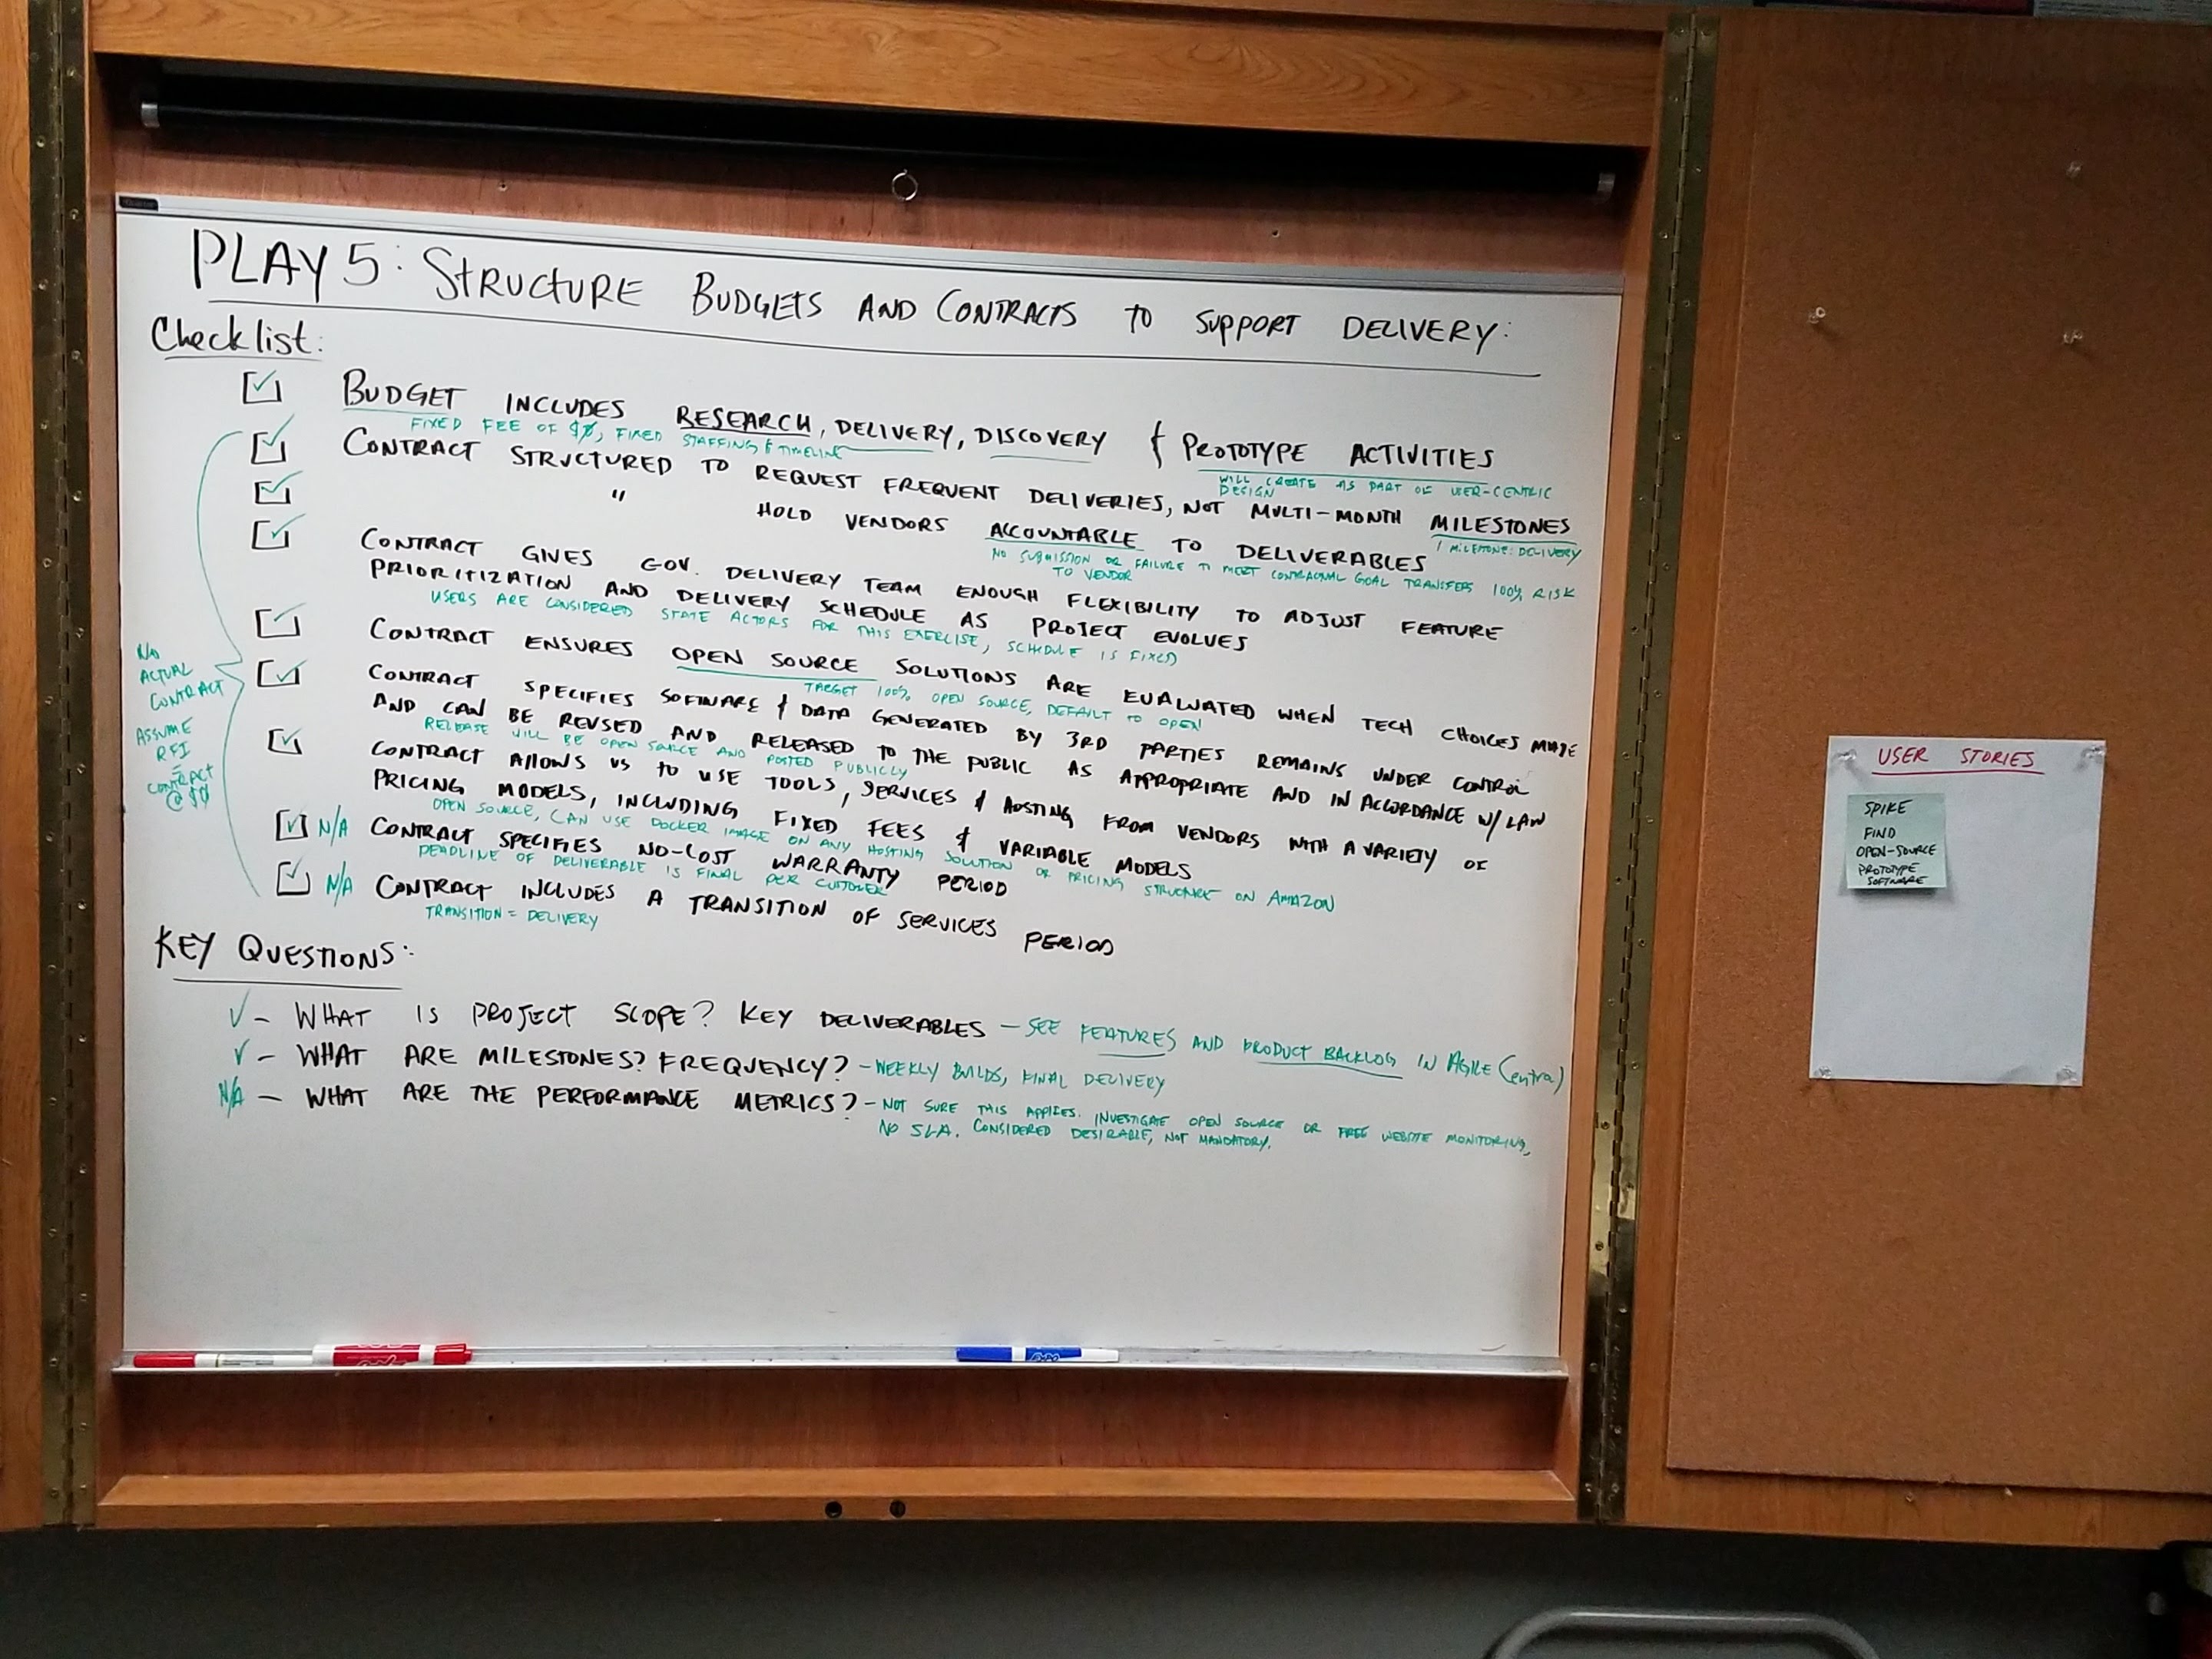 PLAY 5: STRUCTURE BUDGETS AND CONTRACTS TO SUPPORT DELIVERY:
Checklist:
BUDGET INCLUDES RESEARCH, DELIVERY, DISCOVERY & PROTOTYPE ACTIVITIES
FIXED FEE OF $0, FIXED STAFFING & TIMELINE
WILL CREATE AS PART OF USER-CENTRIC
DESIGN
CONTRACT STRUCTURED TO REQUEST FREQUENT DELIVERIES, NOT MULTI-MONTH MILESTONES
1 MILESTONE: DELIVERY
" HOLD VENDORS ACCOUNTABLE TO DELIVERABLES
NO SUBMISSION OR FAILURE TO MEET CONTRACTUAL GOAL TRANSFERS 100% RISK
TO VENDOR
CONTRACT GIVES GOV. DELIVERY TEAM ENOUGH FLEXIBILITY TO ADJUST FEATURE
PRIORITIZATION AND DELIVERY SCHEDULE AS PROJECT EVOLVES
USERS ARE CONSIDERED STATE ACTORS FOR THIS EXERCISE, SCHEDULE IS FIXED
CONTRACT ENSURES OPEN SOURCE SOLUTIONS ARE EVALUATED WHEN TECH CHOICES MADE
TARGET 100% OPEN SOURCE, DEFAULT TO OPEN
CONTRACT SPECIFIES SOFTWARE & DATA GENERATED BY 3RD PARTIES REMAINS UNDER CONTROL
AND CAN BE REUSED AND RELEASED TO THE PUBLIC AS APPROPRIATE AND IN ACCORDANCE W/ LAW
RELEASE WILL BE OPEN SOURCE AND POSTED PUBLICLY
CONTRACT ALLOWS US TO USE TOOLS, SERVICES & HOSTING FROM VENDORS WITH A VARIETY OF
PRICING MODELS, INCLUDING FIXED FEES & VARIABLE MODELS
OPEN SOURCE, CAN USE DOCKER IMAGE ON ANY HOSTING SOLUTION OR PRICING STRUCTURE ON AMAZON
N/A CONTRACT SPECIFIES NO-COST WARRANTY PERIOD
DEADLINE OF DELIVERABLE IS FINAL PER CUSTOMER
N/A CONTRACT INCLUDES A TRANSITION OF SERVICES PERIOD
TRANSITION = DELIVERY
NO
ACTUAL
CONTRACT
ASSUME
RFI
=
CONTRACT
@ $0
KEY QUESTIONS:
✓ - WHAT IS PROJECT SCOPE? KEY DELIVERABLES - SEE FEATURES AND PRODUCT BACKLOG IN AGILE Central
✓ - WHAT ARE MILESTONES? FREQUENCY? - WEEKLY BUILDS, FINAL DELIVERY
N/A - WHAT ARE THE PERFORMANCE METRICS? - NOT SURE THIS APPLIES. INVESTIGATE OPEN SOURCE OR FREE WEBSITE MONITORING,
NO SLA. CONSIDERED DESIRABLE, NOT MANDATORY.
USER STORIES
SPIKE
FIND
OPEN-SOURCE
PROTOTYPE
SOFTWARE
EXPO